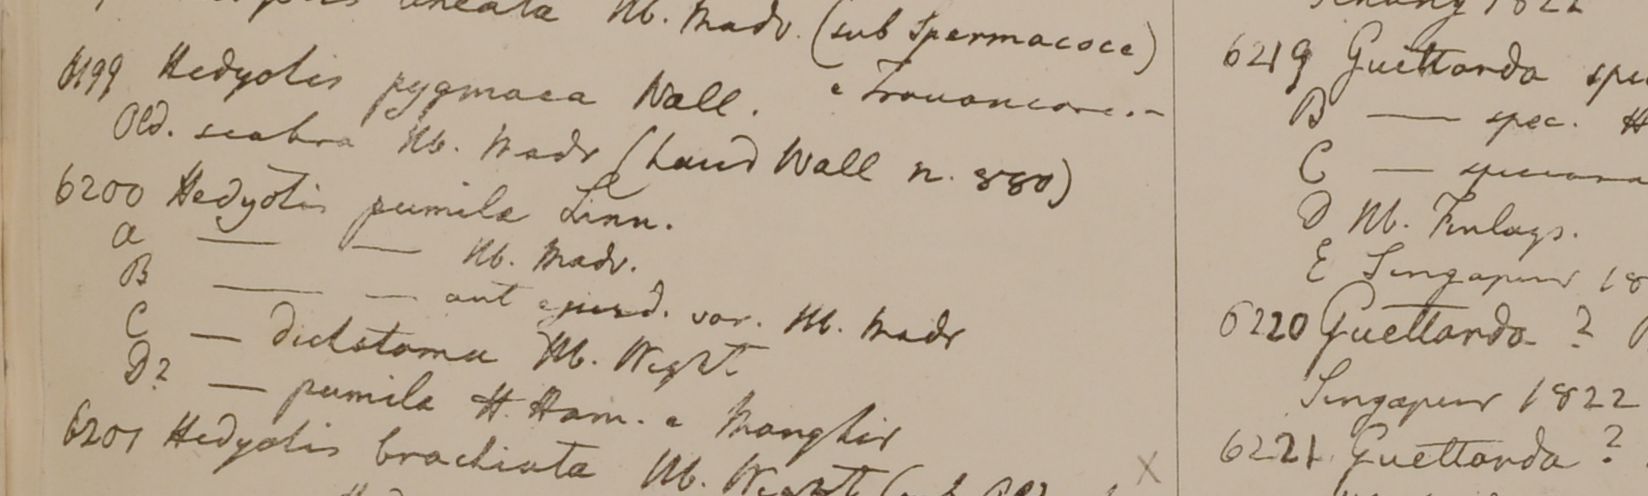 lineata Hb. Madr. (sub Spermacoce)
6199 Hedyotis pygmaea Wall. e Travancore.-
Old. scabra Hb. Madr (haud Wall n. 880)
6200 Hedyotis pumila Linn.
a — — Hb. Madr.
B — — aut ejusd. var. Hb. Madr
C — dichotoma Hb. Wight
D? — pumila H. Ham. e Monghir
6201 Hedyotis brachiata Hb. Wight (sub Old
1822
6219 Guettarda spe
B — spec. H
C —
D Hb. Finlays.
E Singapur 18
6220 Guettarda ?
Singapur 1822
6221 Guettarda ?
X